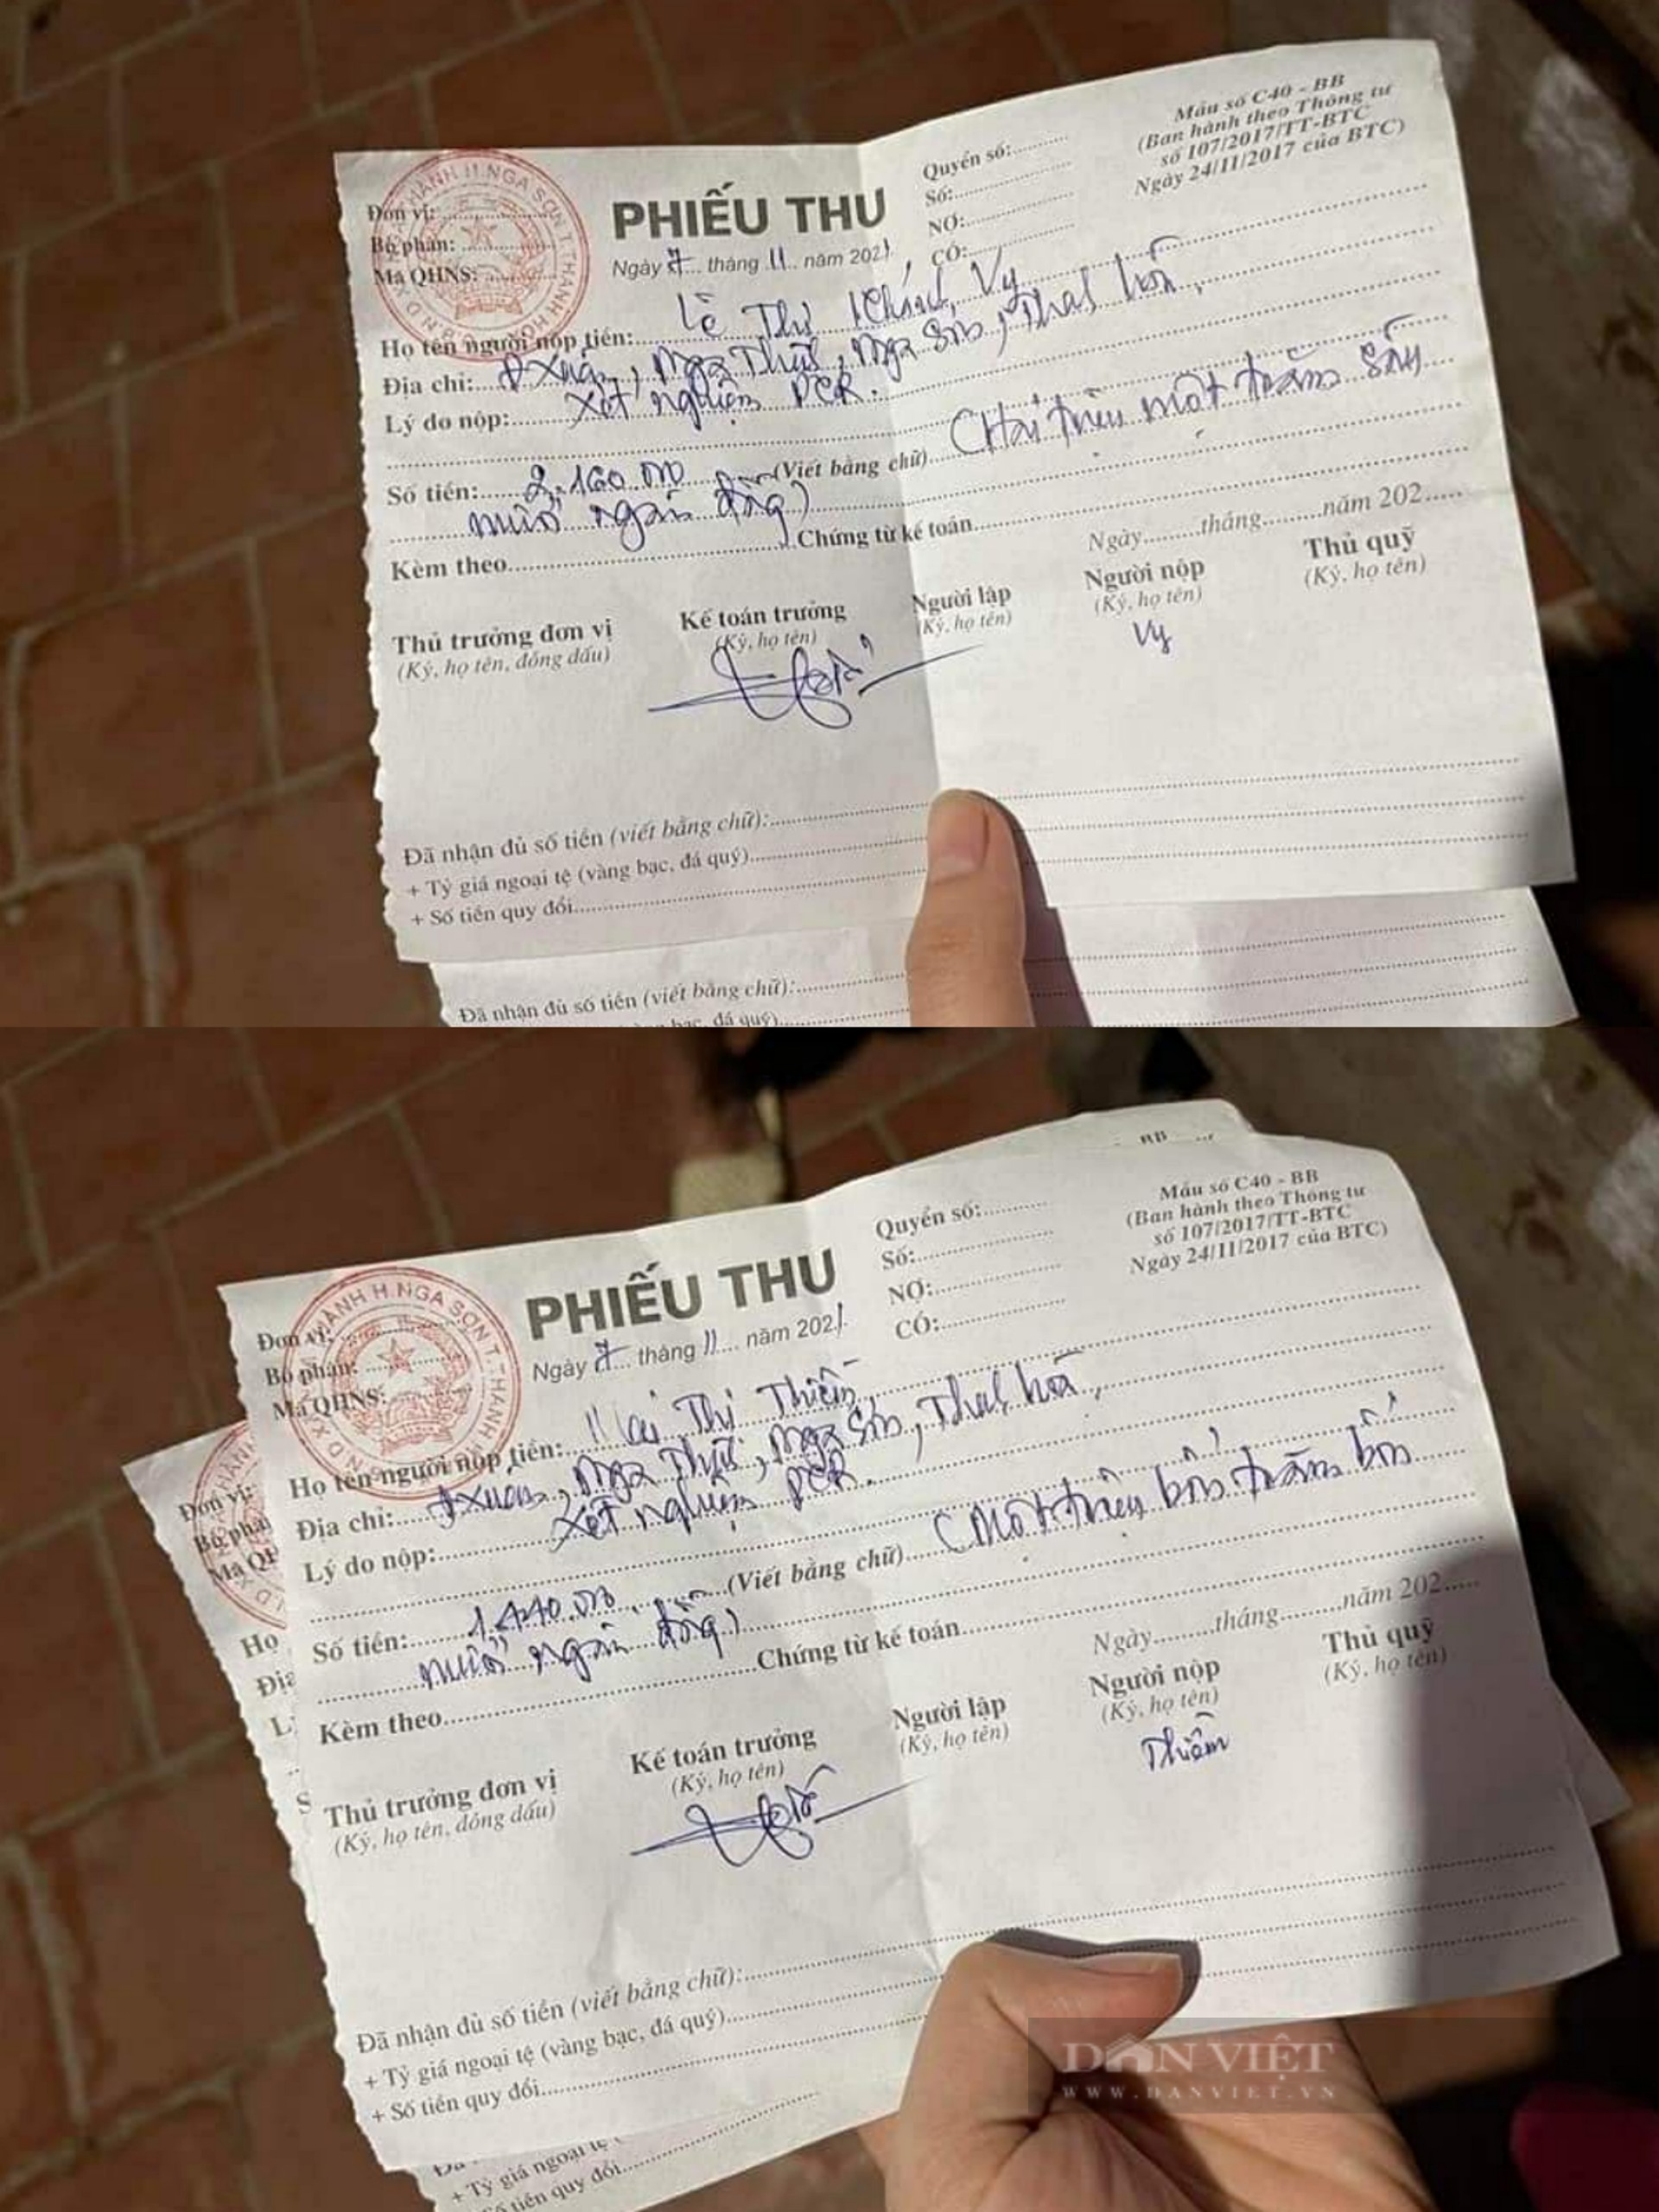 Mẫu số C40 - BB
(Ban hành theo Thông tư
số 107/2017/TT-BTC
Ngày 24/11/2017 của BTC)
Quyển số:..........
Số:..........
NỢ:..........
CÓ:..........
PHIẾU THU
Ngày 7... tháng 11... năm 2021
Đơn vị:..........
Bộ phận:..........
Mã QHNS:..........
THÀNH H.NGA SƠN T.THANH HÓA
Họ tên người nộp tiền: Lê Thị Khánh Vy
Địa chỉ: Đ Xuân, Nga Thành, Nga Sơn, Thanh hóa,
Lý do nộp: Xét nghiệm PCR.
Số tiền: 2.160.000 (Viết bằng chữ) (Hai triệu một trăm sáu
mươi ngàn đồng)
Kèm theo..........Chứng từ kế toán..........
Ngày.........tháng.........năm 202.....
Thủ trưởng đơn vị
(Ký, họ tên, đóng dấu)
Kế toán trưởng
(Ký, họ tên)
Người lập
(Ký, họ tên)
Người nộp
(Ký, họ tên)
Vy
Thủ quỹ
(Ký, họ tên)
Đã nhận đủ số tiền (viết bằng chữ):..........
+ Tỷ giá ngoại tệ (vàng bạc, đá quý)..........
+ Số tiền quy đổi..........
Đã nhận đủ số tiền (viết bằng chữ):..........
bạc, đá quý)..........
BB
Mẫu số C40 - BB
(Ban hành theo Thông tư
số 107/2017/TT-BTC
Ngày 24/11/2017 của BTC)
Quyển số:..........
Số:..........
NỢ:..........
CÓ:..........
PHIẾU THU
Ngày 7... tháng 11... năm 2021
Đơn vị:..........
Bộ phận:..........
Mã QHNS:..........
THÀNH H.NGA SƠN T.THANH HÓA
Họ tên người nộp tiền: Mai Thị Thiềm
Địa chỉ: Đ Xuân, Nga Thành, Nga Sơn, Thanh hóa,
Lý do nộp: Xét nghiệm PCR.
Số tiền: 1.440.000 (Viết bằng chữ) (Một triệu bốn trăm bốn
mươi ngàn đồng)
Kèm theo..........Chứng từ kế toán..........
Ngày.........tháng.........năm 202.....
Thủ trưởng đơn vị
(Ký, họ tên, đóng dấu)
Kế toán trưởng
(Ký, họ tên)
Người lập
(Ký, họ tên)
Người nộp
(Ký, họ tên)
Thiềm
Thủ quỹ
(Ký, họ tên)
Đã nhận đủ số tiền (viết bằng chữ):..........
+ Tỷ giá ngoại tệ (vàng bạc, đá quý)..........
+ Số tiền quy đổi..........
Đơn vị:
Bộ phậ
Mã QH
Họ
Địa
L
S
+ Tỷ giá ngoại tệ (
Số tiền quy đổi..........
DÂN VIỆT
WWW.DANVIET.VN